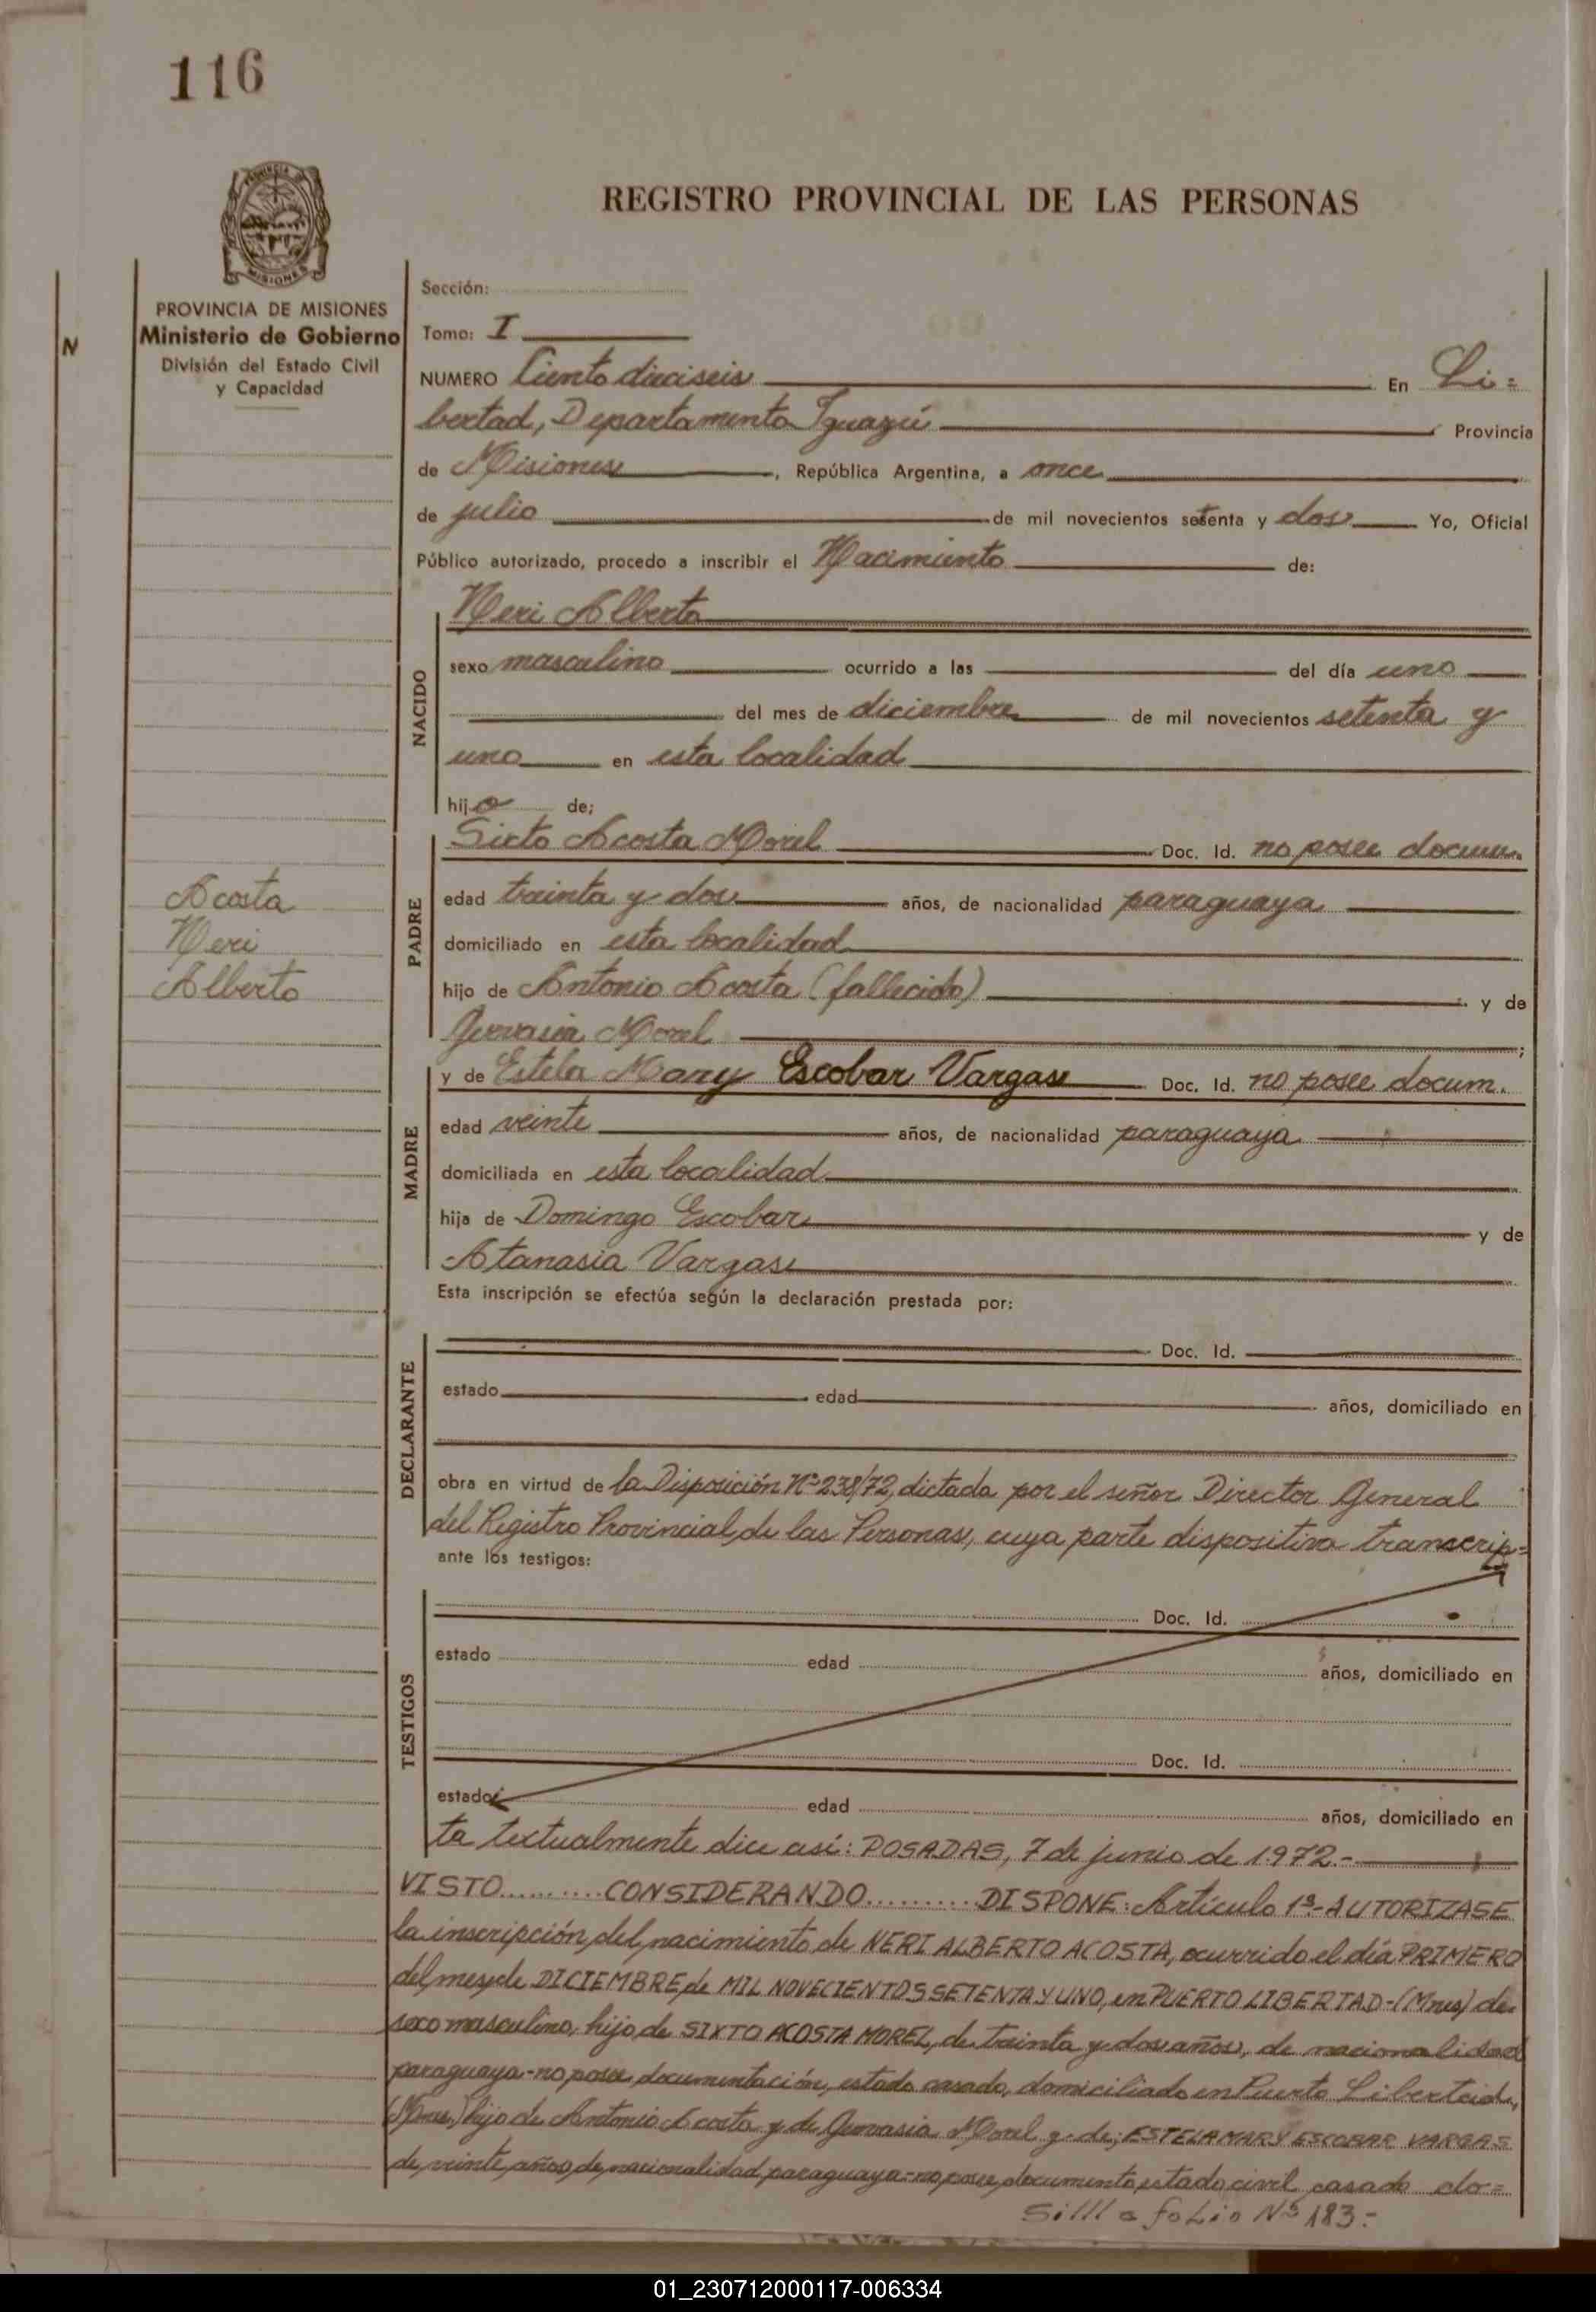 116
PROVINCIA DE
MISIONES
REGISTRO PROVINCIAL DE LAS PERSONAS
PROVINCIA DE MISIONES
Ministerio de Gobierno
División del Estado Civil
y Capacidad
N
Acosta
Neri
Alberto
Sección:
Tomo: I
NUMERO Ciento dieciseis En Li=
bertad, Departamento Iguazú Provincia
de Misiones, República Argentina, a once
de julio de mil novecientos setenta y dos Yo, Oficial
Público autorizado, procedo a inscribir el Nacimiento de:
NACIDO
Neri Alberto
sexo masculino ocurrido a las del día uno
del mes de diciembre de mil novecientos setenta y
uno en esta localidad
hijo de;
PADRE
Sixto Acosta Morel Doc. Id. no posee docum.
edad treinta y dos años, de nacionalidad paraguaya
domiciliado en esta localidad
hijo de Antonio Acosta (fallecido) y de
Gervasia Morel ;
MADRE
y de Estela Mary Escobar Vargas Doc. Id. no posee docum.
edad veinte años, de nacionalidad paraguaya
domiciliada en esta localidad
hija de Domingo Escobar y de
Atanasia Vargas
Esta inscripción se efectúa según la declaración prestada por:
DECLARANTE
Doc. Id.
estado edad años, domiciliado en
obra en virtud de la Disposición Nº 238/72, dictada por el señor Director General
del Registro Provincial de las Personas, cuya parte dispositiva transcrip=
ante los testigos:
TESTIGOS
Doc. Id.
estado edad años, domiciliado en
Doc. Id.
estado edad años, domiciliado en
ta textualmente dice así: POSADAS, 7 de junio de 1972.-
VISTO..........CONSIDERANDO..........DISPONE: Artículo 1º-AUTORIZASE
la inscripción del nacimiento de NERI ALBERTO ACOSTA, ocurrido el día PRIMERO
del mes de DICIEMBRE de MIL NOVECIENTOS SETENTA Y UNO, en PUERTO LIBERTAD-(Mnes) de
sexo masculino, hijo de SIXTO ACOSTA MOREL, de treinta y dos años, de nacionalidad
paraguaya-no posee documentación, estado casado, domiciliado en Puerto Libertad,
(Mnes.) hijo de Antonio Acosta y de Gervasia Morel y de; ESTELA MARY ESCOBAR VARGAS
de veinte años, de nacionalidad paraguaya-no posee documento, estado civil casado do=
folio Nº 183-
01_230712000117-006334